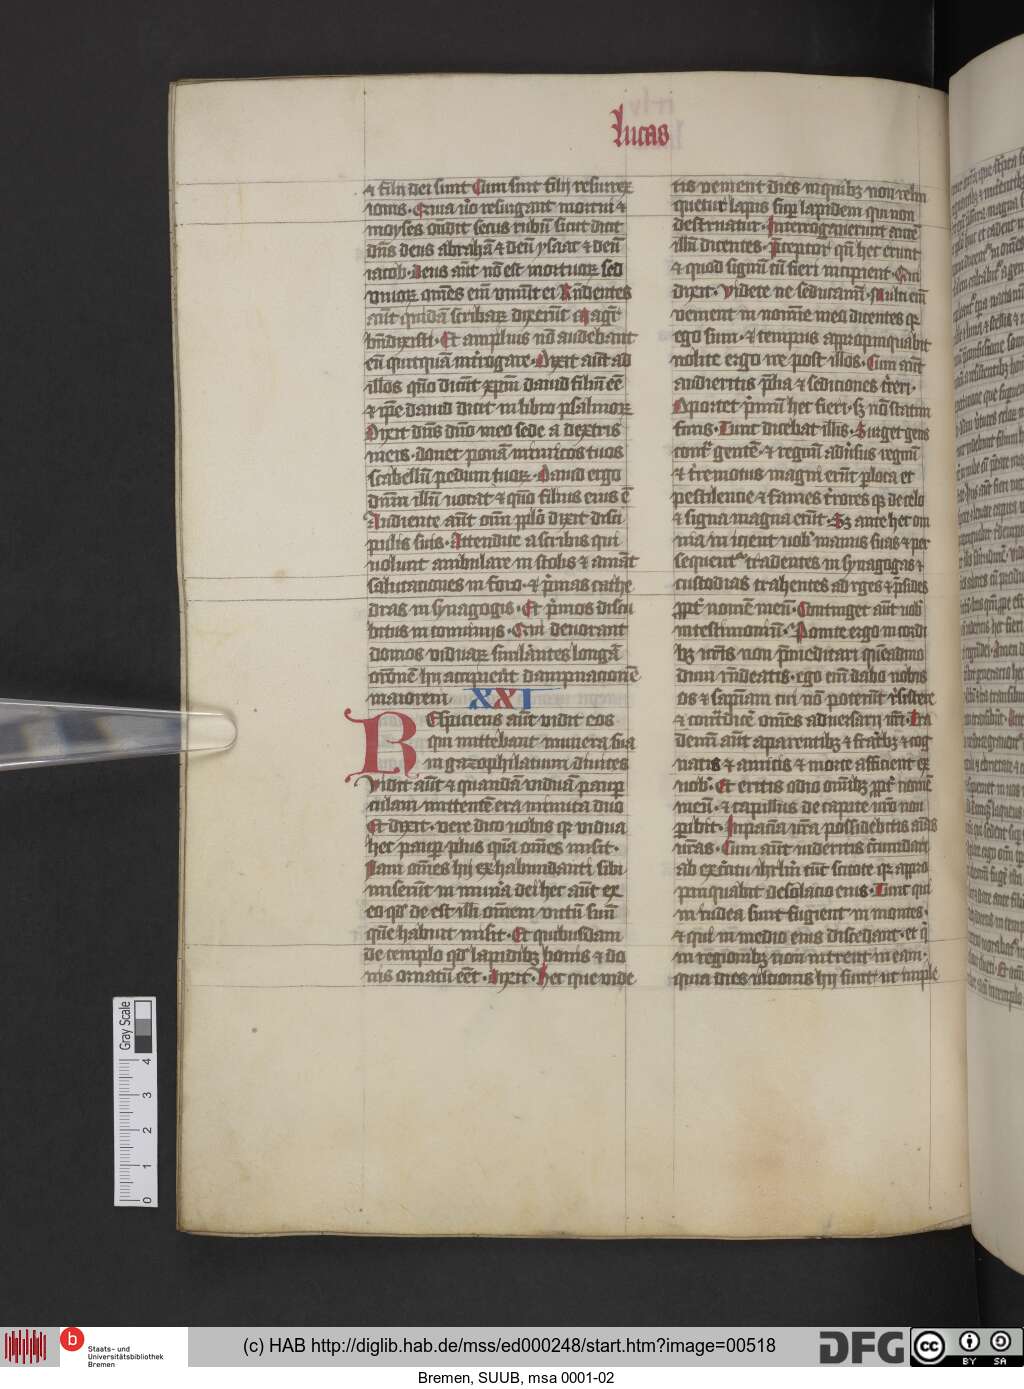 Lucas
& filij dei sunt Cum sint filij resurrec
ionis. Quia ṽo resurgant mortui &
moyses oñdit secus rubũ sicut dicit
dñs deus abrahã & deũ ysaac & deũ
iacob. Deus aũt nõ est mortuoꝝ sed
viuoꝝ om̃es em̃ viuũt ei Rñdentes
aũt quidã scribaꝝ dixerũt Magr̃
bñdixisti. Et amplius nõ audebant
eũ quitquam int̃rogare. Dixit aũt ad
illos quõ dicũt xp̃m dauid filiũ eẽ
& ip̃e dauid dicit in libro psalmoꝝ
Dixit dñs dño meo sede a dextris
meis. donec ponã inimicos tuos
scabellũ pedum tuoꝝ. Dauid ergo
dñm illũ uocat & quõ filius eius ẽ
Audiente aũt om̃i pplõ dixit disci
pulis suis. Attendite a scribis qui
uolunt ambulare in stolis & amãt
salutaciones in foro. & p̃mas cathe
dras in synagogis. Et p̃mos discu
bitus in conuiuijs. Qui deuorant
domos viduaꝝ simulãtes longã
or̃onẽ hij accipiẽt dampnacionẽ
maiorem XXI
Respiciens aũt vidit eos
qui mittebant munera sua
in gazophilatium diuites
Vidit aũt & quandã viduã paup
culam mittentẽ era minuta duo
Et dixit. vere dico uobis qꝛ vidua
hec paup plus quã om̃es misit.
Nam om̃es hij ex habundanti sibi
miserũt in mun̄a dei hec aũt ex
eo qd̃ de est illi om̃em victũ suũ
quẽ habuit misit. Et quibusdam
de templo qd̃ lapidibꝫ bonis & do
nis ornatũ eẽt. Dixit. Hec que vide
tis venient dies in quibꝫ non relin
quetur lapis sup lapidem qui non
destruatur. Interrogauerunt autẽ
illũ dicentes. p̃ceptor qñ hec erunt
& quod signũ cũ fieri incipient. Qui
dixit. Videte ne seducamĩ. Multi em̃
venient in nomĩe meo dicentes qꝛ
ego sum. & tempus appropinquabit
nolite ergo ire post illos. Cum aũt
audieritis p̃lia & sediciones t̃reri.
Oportet p̃mũ hec fieri. sꝫ nõ statim
finis. Tunc dicebat illis. Surget gens
contr̃ gentẽ. & regnũ adũsus regnũ
& t̃remotus magni erũt p loca et
pestilencie & fames t̃rores qꝫ de celo
& signa magna erũt. Sꝫ ante hec om
nia in icient uob̃ manus suas & per
sequent̃ tradentes in synagogas &
custodias trahentes ad reges & p̃sides
ppt̃ nomẽ meũ. Continget aũt uob̃
in testimoniũ. Ponite ergo in cordi
bꝫ vr̃is non p̃meditari quẽadmo
dum rñdeatis. ego em̃ dabo uobis
os & sapiam cui nõ poterũt r̃sistere
& cont̃dicẽ om̃es aduersarij vr̃i. Tra
demĩ aũt a parentibꝫ & fratr̃bꝫ & cog
natis & amicis & morte afficient ex
uob̃. Et eritis odio om̃ibꝫ ppt̃ nomẽ
meũ. & capillus de capite uro non
pibit. In paciã vr̃a possidebitis aĩas
vr̃as. Cum aũt uideritis c̃cumdari
ab ex̃citu ihrl̃m tũc scitote qꝛ appro
pinquabit desolacio eius. Tunc qui
in iudea sunt fugient in montes.
& qui in medio eius discedant. et q̃
in regionibꝫ non intrent in eam.
quia dies ulcionis hij sunt. ut imple
Gray Scale
4
3
2
1
0
b
Staats- und
Universitätsbibliothek
Bremen
(c) HAB http://diglib.hab.de/mss/ed000248/start.htm?image=00518
DFG
cc
BY SA
Bremen, SUUB, msa 0001-02